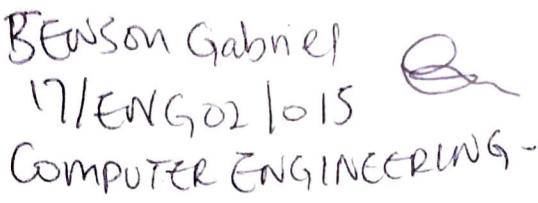 BENSON Gabriel
17/ENG02/015
COMPUTER ENGINEERING-